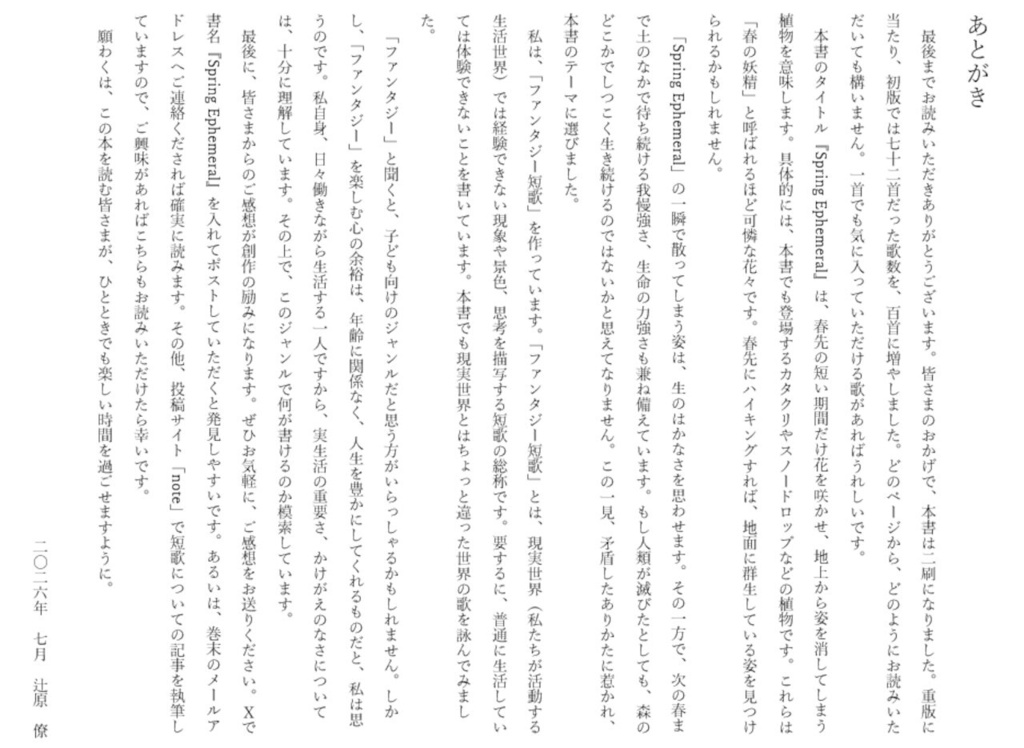 あとがき
最後までお読みいただきありがとうございます。皆さまのおかげで、本書は二刷になりました。重版に
当たり、初版では七十二首だった歌数を、百首に増やしました。どのページから、どのようにお読みいた
だいても構いません。一首でも気に入っていただける歌があればうれしいです。
本書のタイトル『Spring Ephemeral』は、春先の短い期間だけ花を咲かせ、地上から姿を消してしまう
植物を意味します。具体的には、本書でも登場するカタクリやスノードロップなどの植物です。これらは
「春の妖精」と呼ばれるほど可憐な花々です。春先にハイキングすれば、地面に群生している姿を見つけ
られるかもしれません。
「Spring Ephemeral」の一瞬で散ってしまう姿は、生のはかなさを思わせます。その一方で、次の春ま
で土のなかで待ち続ける我慢強さ、生命の力強さも兼ね備えています。もし人類が滅びたとしても、森の
どこかでしつこく生き続けるのではないかと思えてなりません。この一見、矛盾したありかたに惹かれ、
本書のテーマに選びました。
私は、「ファンタジー短歌」を作っています。「ファンタジー短歌」とは、現実世界（私たちが活動する
生活世界）では経験できない現象や景色、思考を描写する短歌の総称です。要するに、普通に生活してい
ては体験できないことを書いています。本書でも現実世界とはちょっと違った世界の歌を詠んでみまし
た。
「ファンタジー」と聞くと、子ども向けのジャンルだと思う方がいらっしゃるかもしれません。しか
し、「ファンタジー」を楽しむ心の余裕は、年齢に関係なく、人生を豊かにしてくれるものだと、私は思
うのです。私自身、日々働きながら生活する一人ですから、実生活の重要さ、かけがえのなさについて
は、十分に理解しています。その上で、このジャンルで何が書けるのか模索しています。
最後に、皆さまからのご感想が創作の励みになります。ぜひお気軽に、ご感想をお送りください。Xで
書名『Spring Ephemeral』を入れてポストしていただくと発見しやすいです。あるいは、巻末のメールア
ドレスへご連絡くだされば確実に読みます。その他、投稿サイト「note」で短歌についての記事を執筆し
ていますので、ご興味があればこちらもお読みいただけたら幸いです。
願わくは、この本を読む皆さまが、ひとときでも楽しい時間を過ごせますように。
二〇二六年　七月　辻原　僚